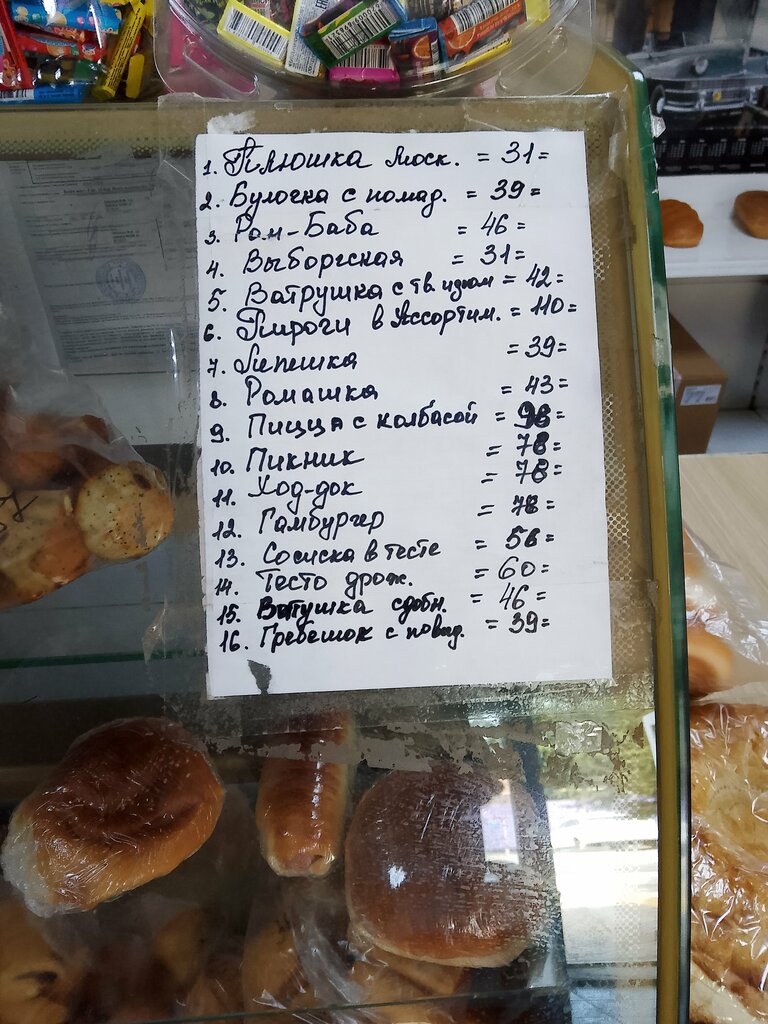 1. Плюшка моск. = 31=
2. Булочка с помад. = 39=
3. Ром-Баба = 46=
4. Выборгская = 31=
5. Ватрушка с тв. = 42=
6. Пироги в Ассортим. = 110=
7. Лепешка = 39=
8. Ромашка = 43=
9. Пицца с колбасой = 98=
10. Пикник = 78=
11. Ход-док = 78=
12. Гамбургер = 78=
13. Сосиска в тесте = 56=
14. Тесто дрож. = 60=
15. сдобн. = 46=
16. Гребешок с повид. = 39=